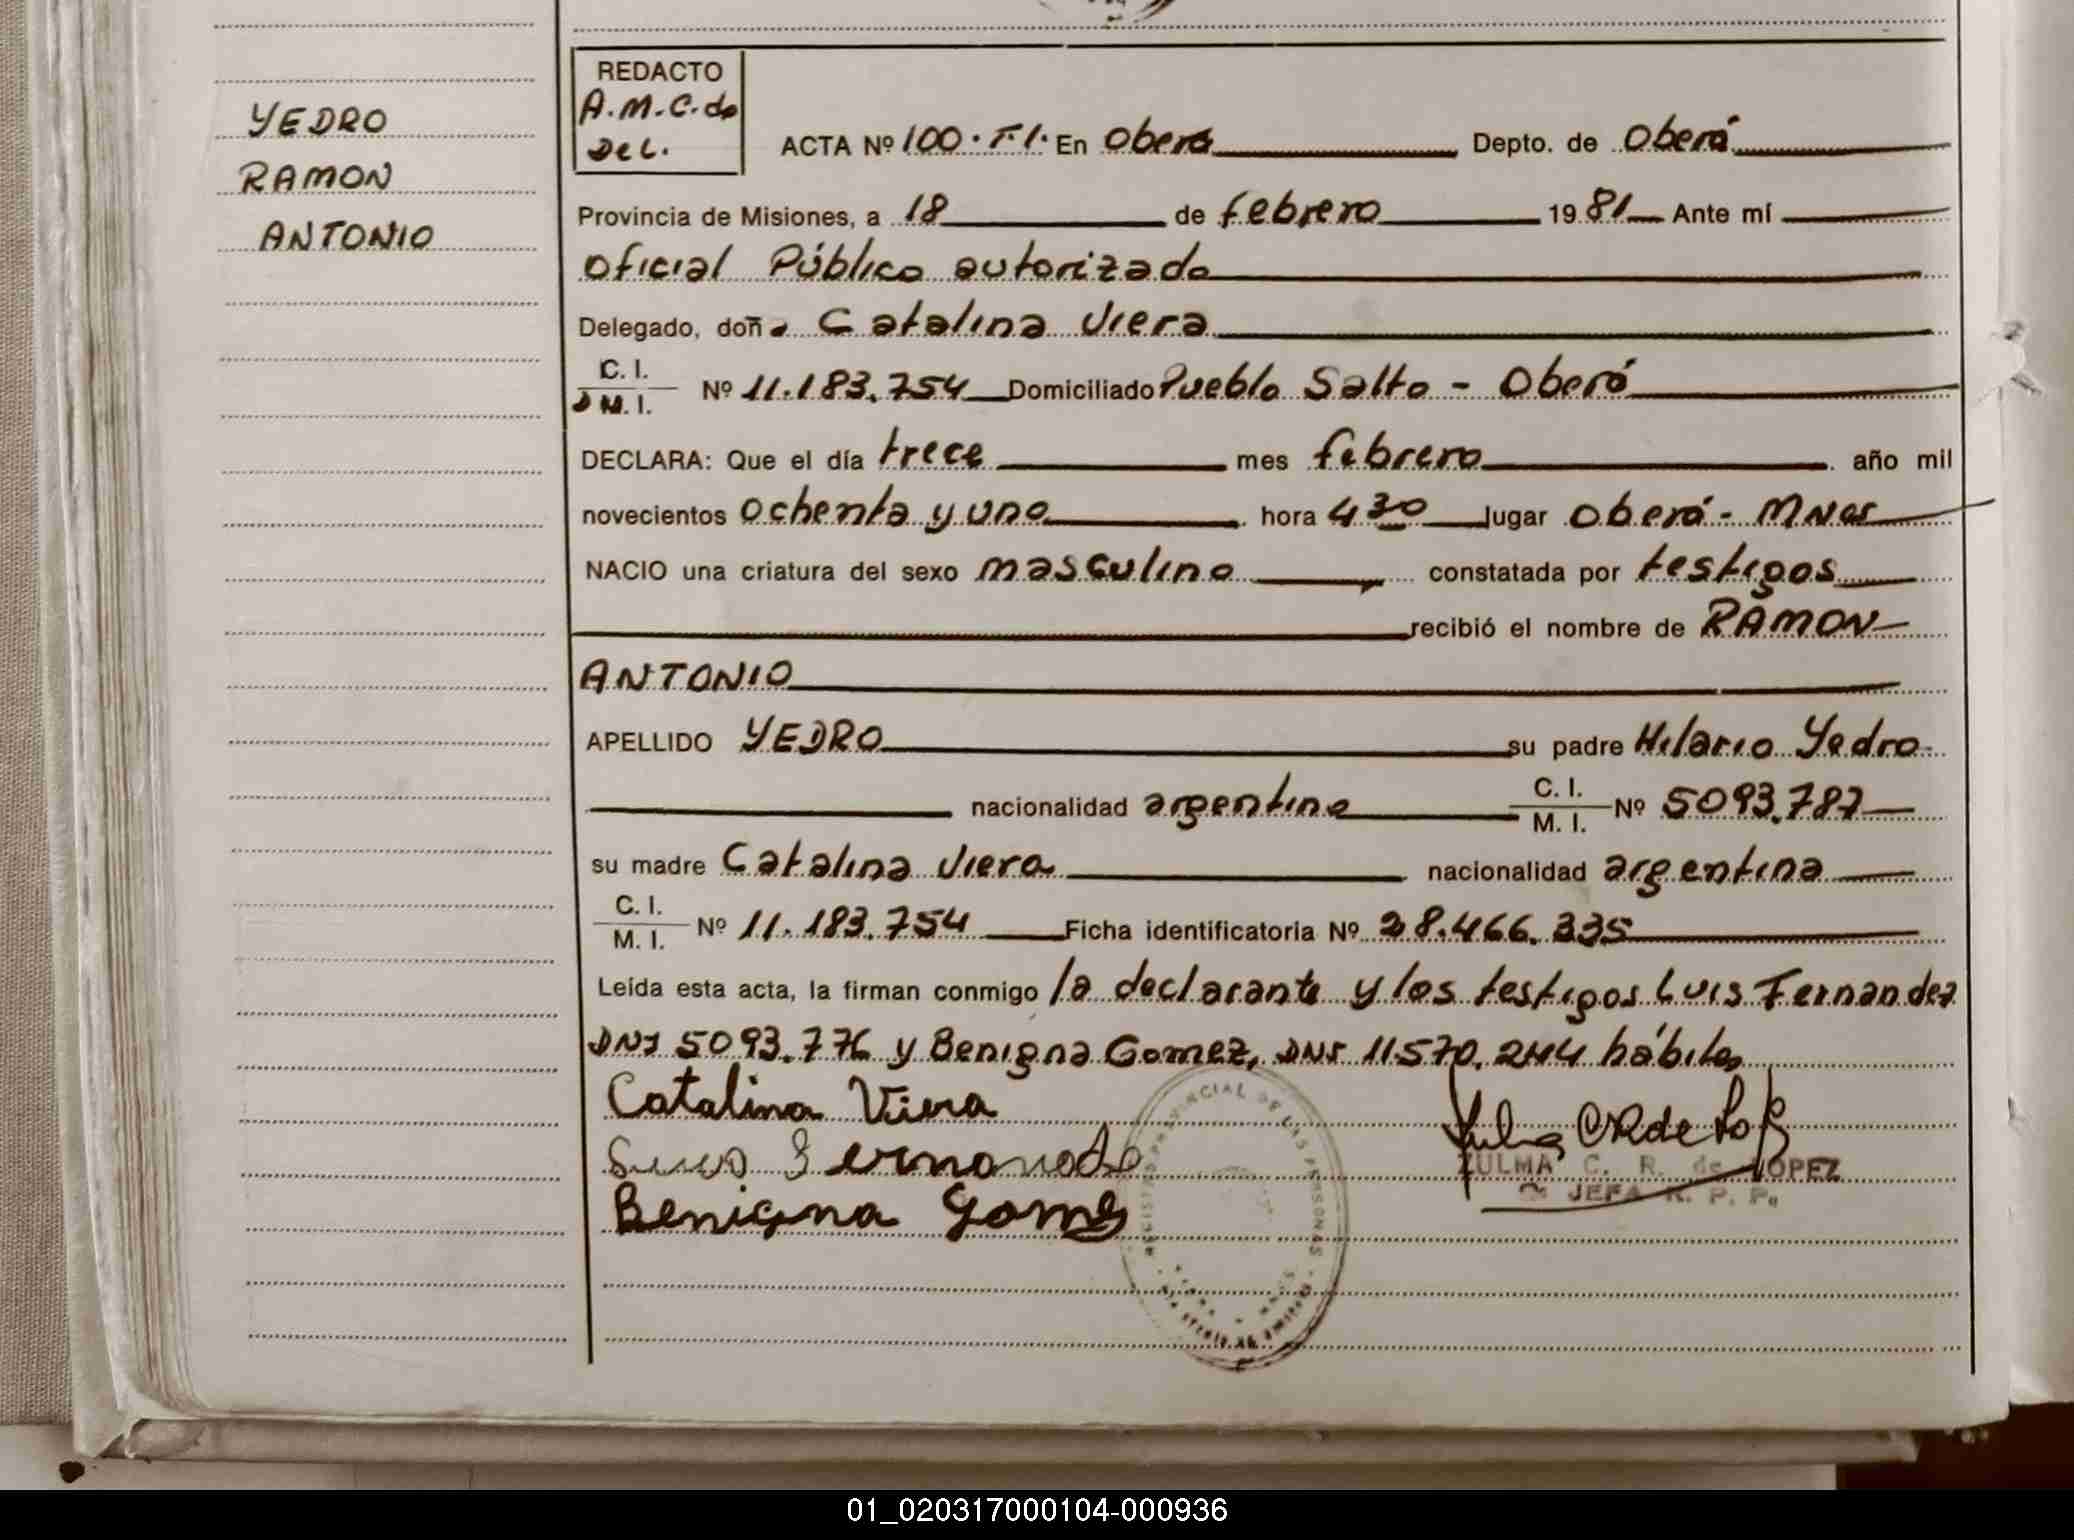 YEDRO
RAMON
ANTONIO
REDACTO
A.M.C.de
Del.
ACTA Nº 100.T.I. En Oberá Depto. de Oberá
Provincia de Misiones, a 18 de febrero 1981 Ante mí
Oficial Público autorizado
Delegado, doña Catalina Viera
C. I.
D M. I. Nº 11.183.754 Domiciliado Pueblo Salto - Oberá
DECLARA: Que el día trece mes febrero año mil
novecientos ochenta y uno hora 4 30 lugar Oberá - Mnes
NACIO una criatura del sexo masculino constatada por testigos
recibió el nombre de RAMON
ANTONIO
APELLIDO YEDRO su padre Hilario Yedro
nacionalidad argentina C. I. M. I. Nº 5093.787
su madre Catalina Viera nacionalidad argentina
C. I. M. I. Nº 11.183.754 Ficha identificatoria Nº 28.466.335
Leída esta acta, la firman conmigo la declarante y los testigos Luis Fernandez
DNI 5093.776 y Benigna Gomez, DNI 11570.244 hábiles
Catalina Viera
Benigna Gomez
ZULMA C. R. de LOPEZ
JEFA R. P. P.
REGISTRO PROVINCIAL DE LAS PERSONAS
01_020317000104-000936